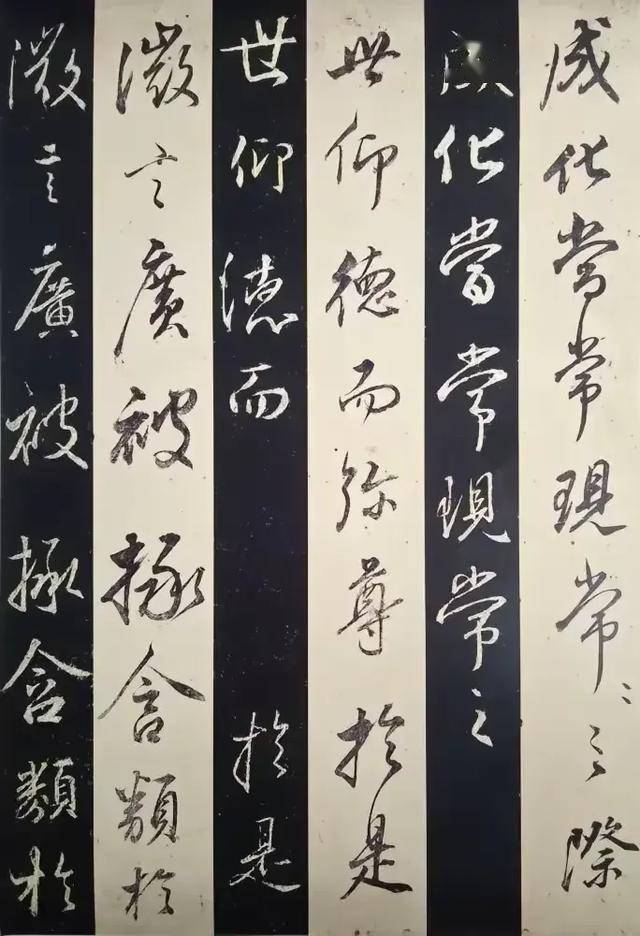 成化當常現常之際
化當常現常之
世仰德而弥尊於是
世仰德而於是
微言廣被拯含類於
微言廣被拯含類於